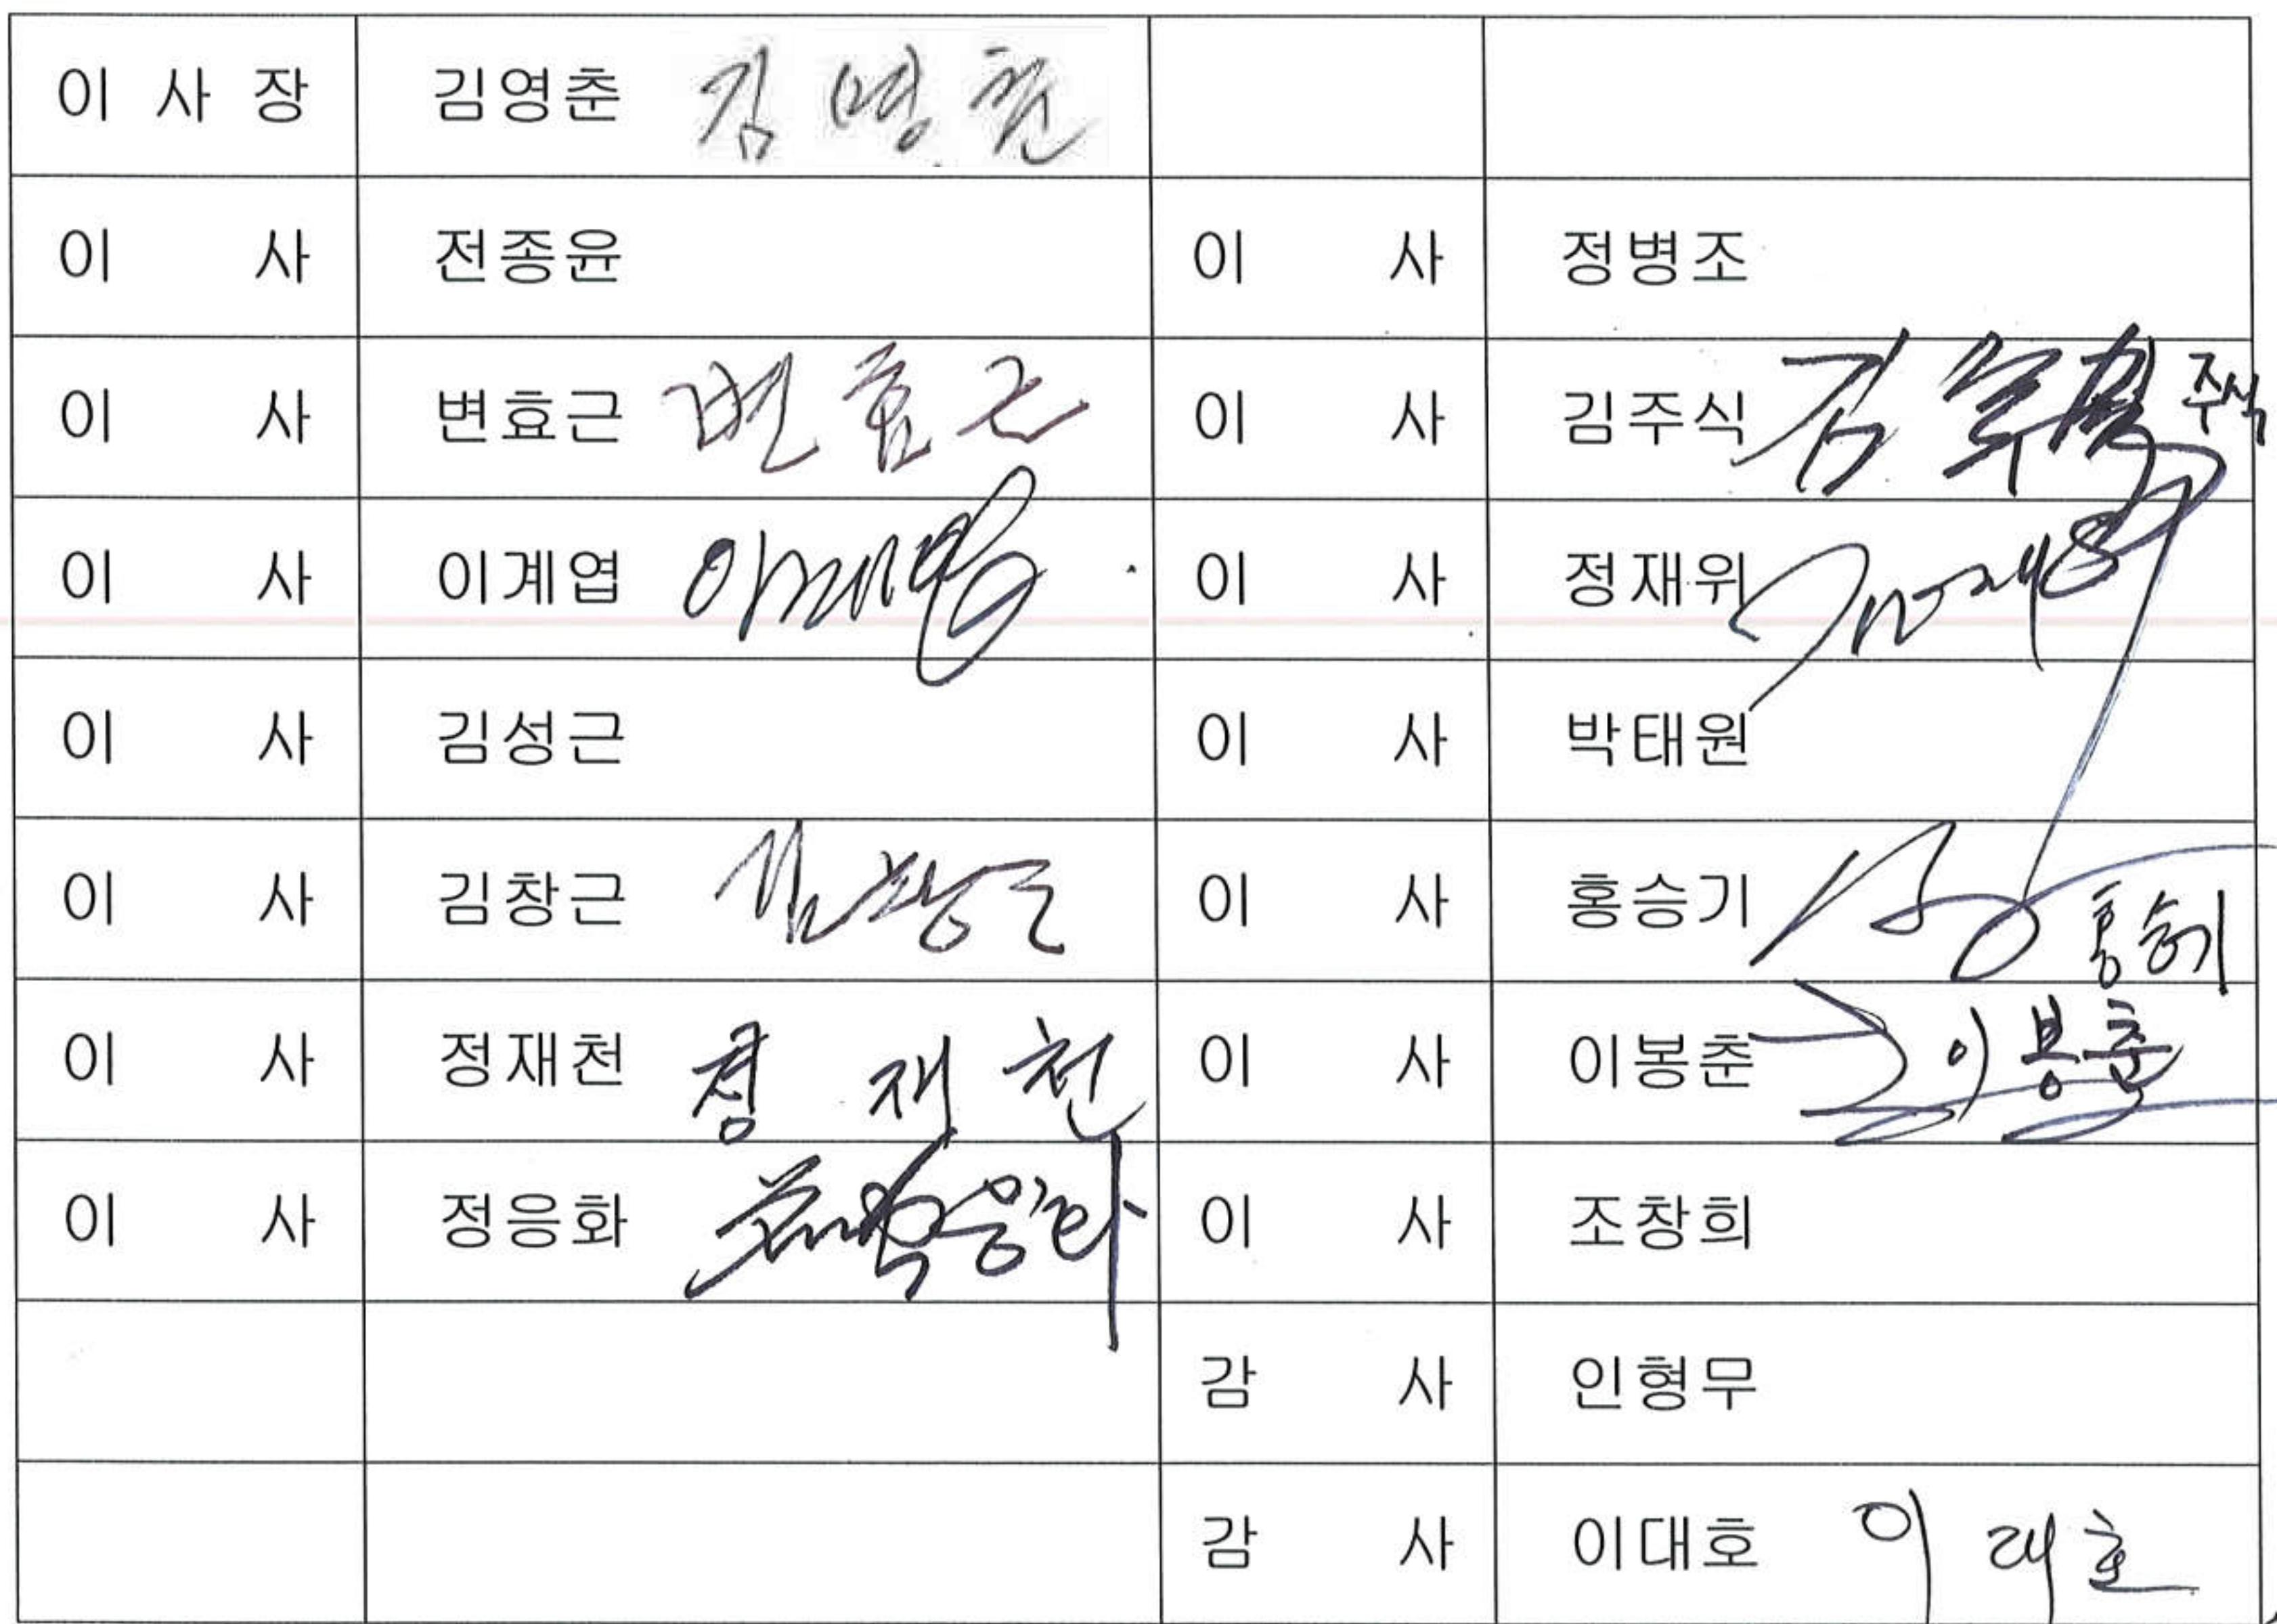 이 사 장 김영춘 김영춘
이 사 전종윤 이 사 정병조
이 사 변효근 변효근 이 사 김주식 김주식 주식
이 사 이계엽 이계엽 이 사 정재위
이 사 김성근 이 사 박태원
이 사 김창근 김창근 이 사 홍승기 홍승기
이 사 정재천 정재천 이 사 이봉춘 이봉춘
이 사 정응화 정응화 이 사 조창희
감 사 인형무
감 사 이대호 이대호